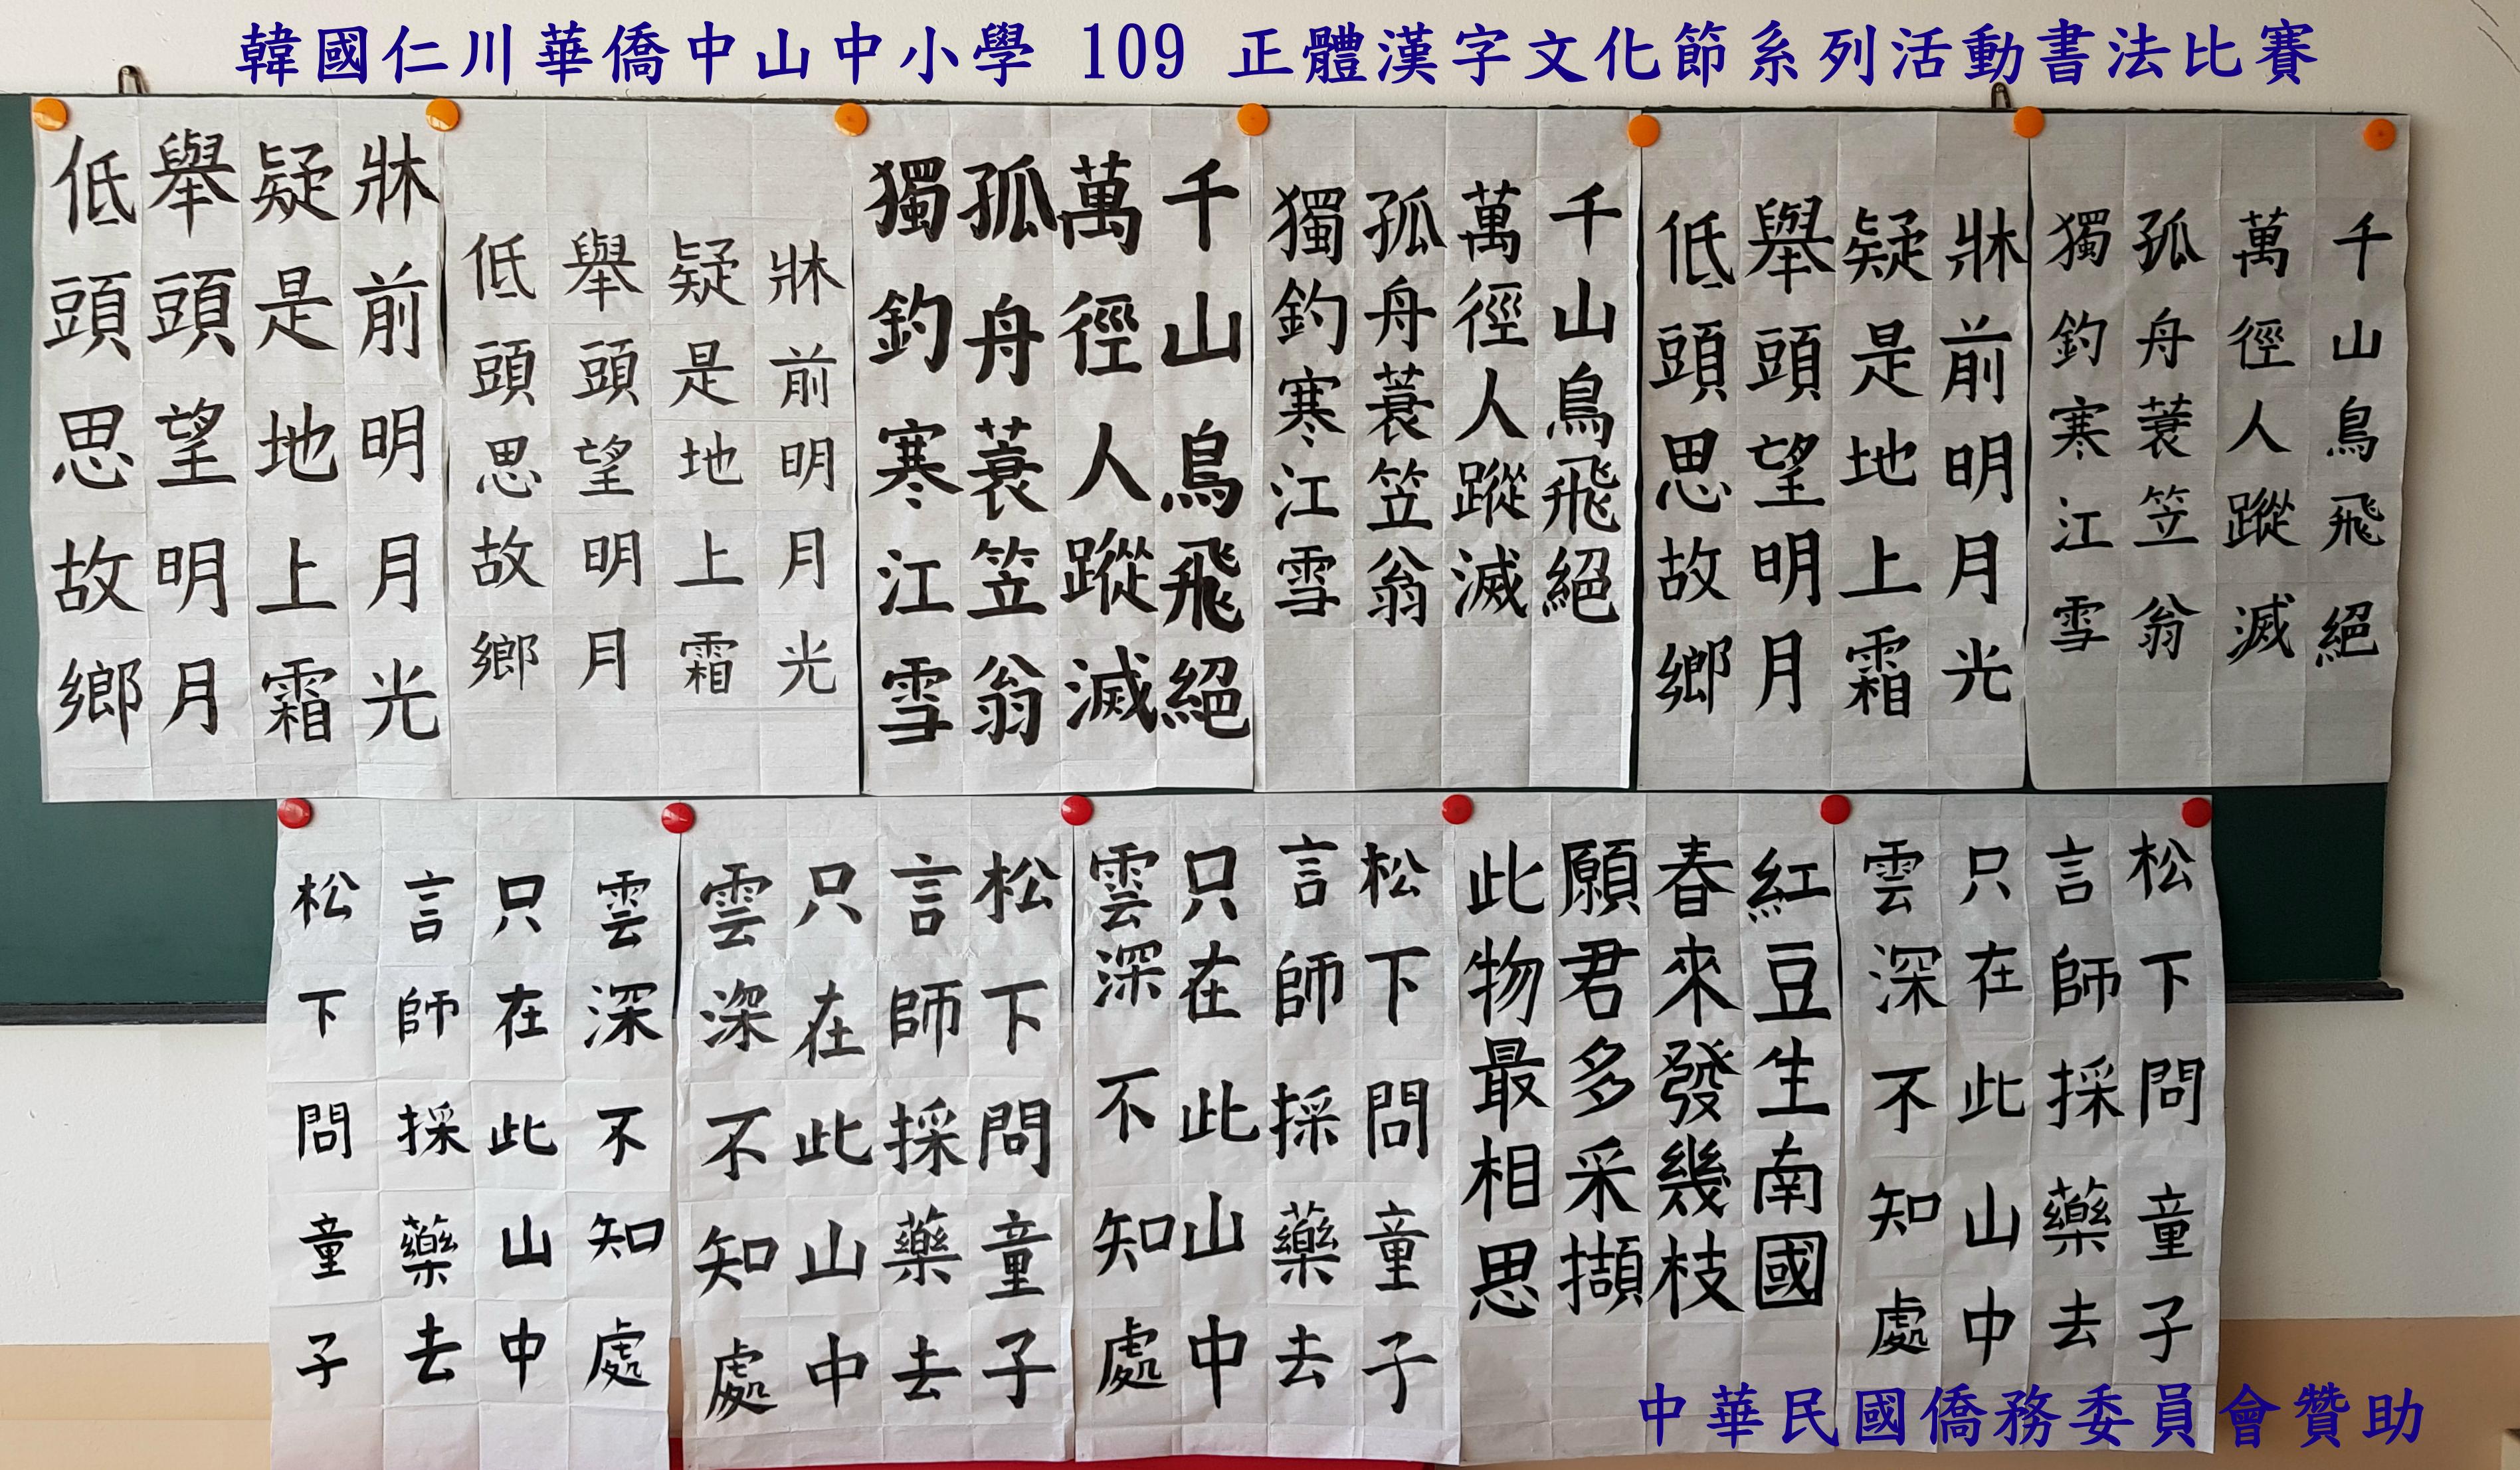 韓國仁川華僑中山中小學 109 正體漢字文化節系列活動書法比賽
千山鳥飛絕
萬徑人蹤滅
孤舟蓑笠翁
獨釣寒江雪
牀前明月光
疑是地上霜
舉頭望明月
低頭思故鄉
千山鳥飛絕
萬徑人蹤滅
孤舟蓑笠翁
獨釣寒江雪
千山鳥飛絕
萬徑人蹤滅
孤舟蓑笠翁
獨釣寒江雪
牀前明月光
疑是地上霜
舉頭望明月
低頭思故鄉
牀前明月光
疑是地上霜
舉頭望明月
低頭思故鄉
松下問童子
言師採藥去
只在此山中
雲深不知處
紅豆生南國
春來發幾枝
願君多采擷
此物最相思
松下問童子
言師採藥去
只在此山中
雲深不知處
松下問童子
言師採藥去
只在此山中
雲深不知處
松下問童子
言師採藥去
只在此山中
雲深不知處
中華民國僑務委員會贊助